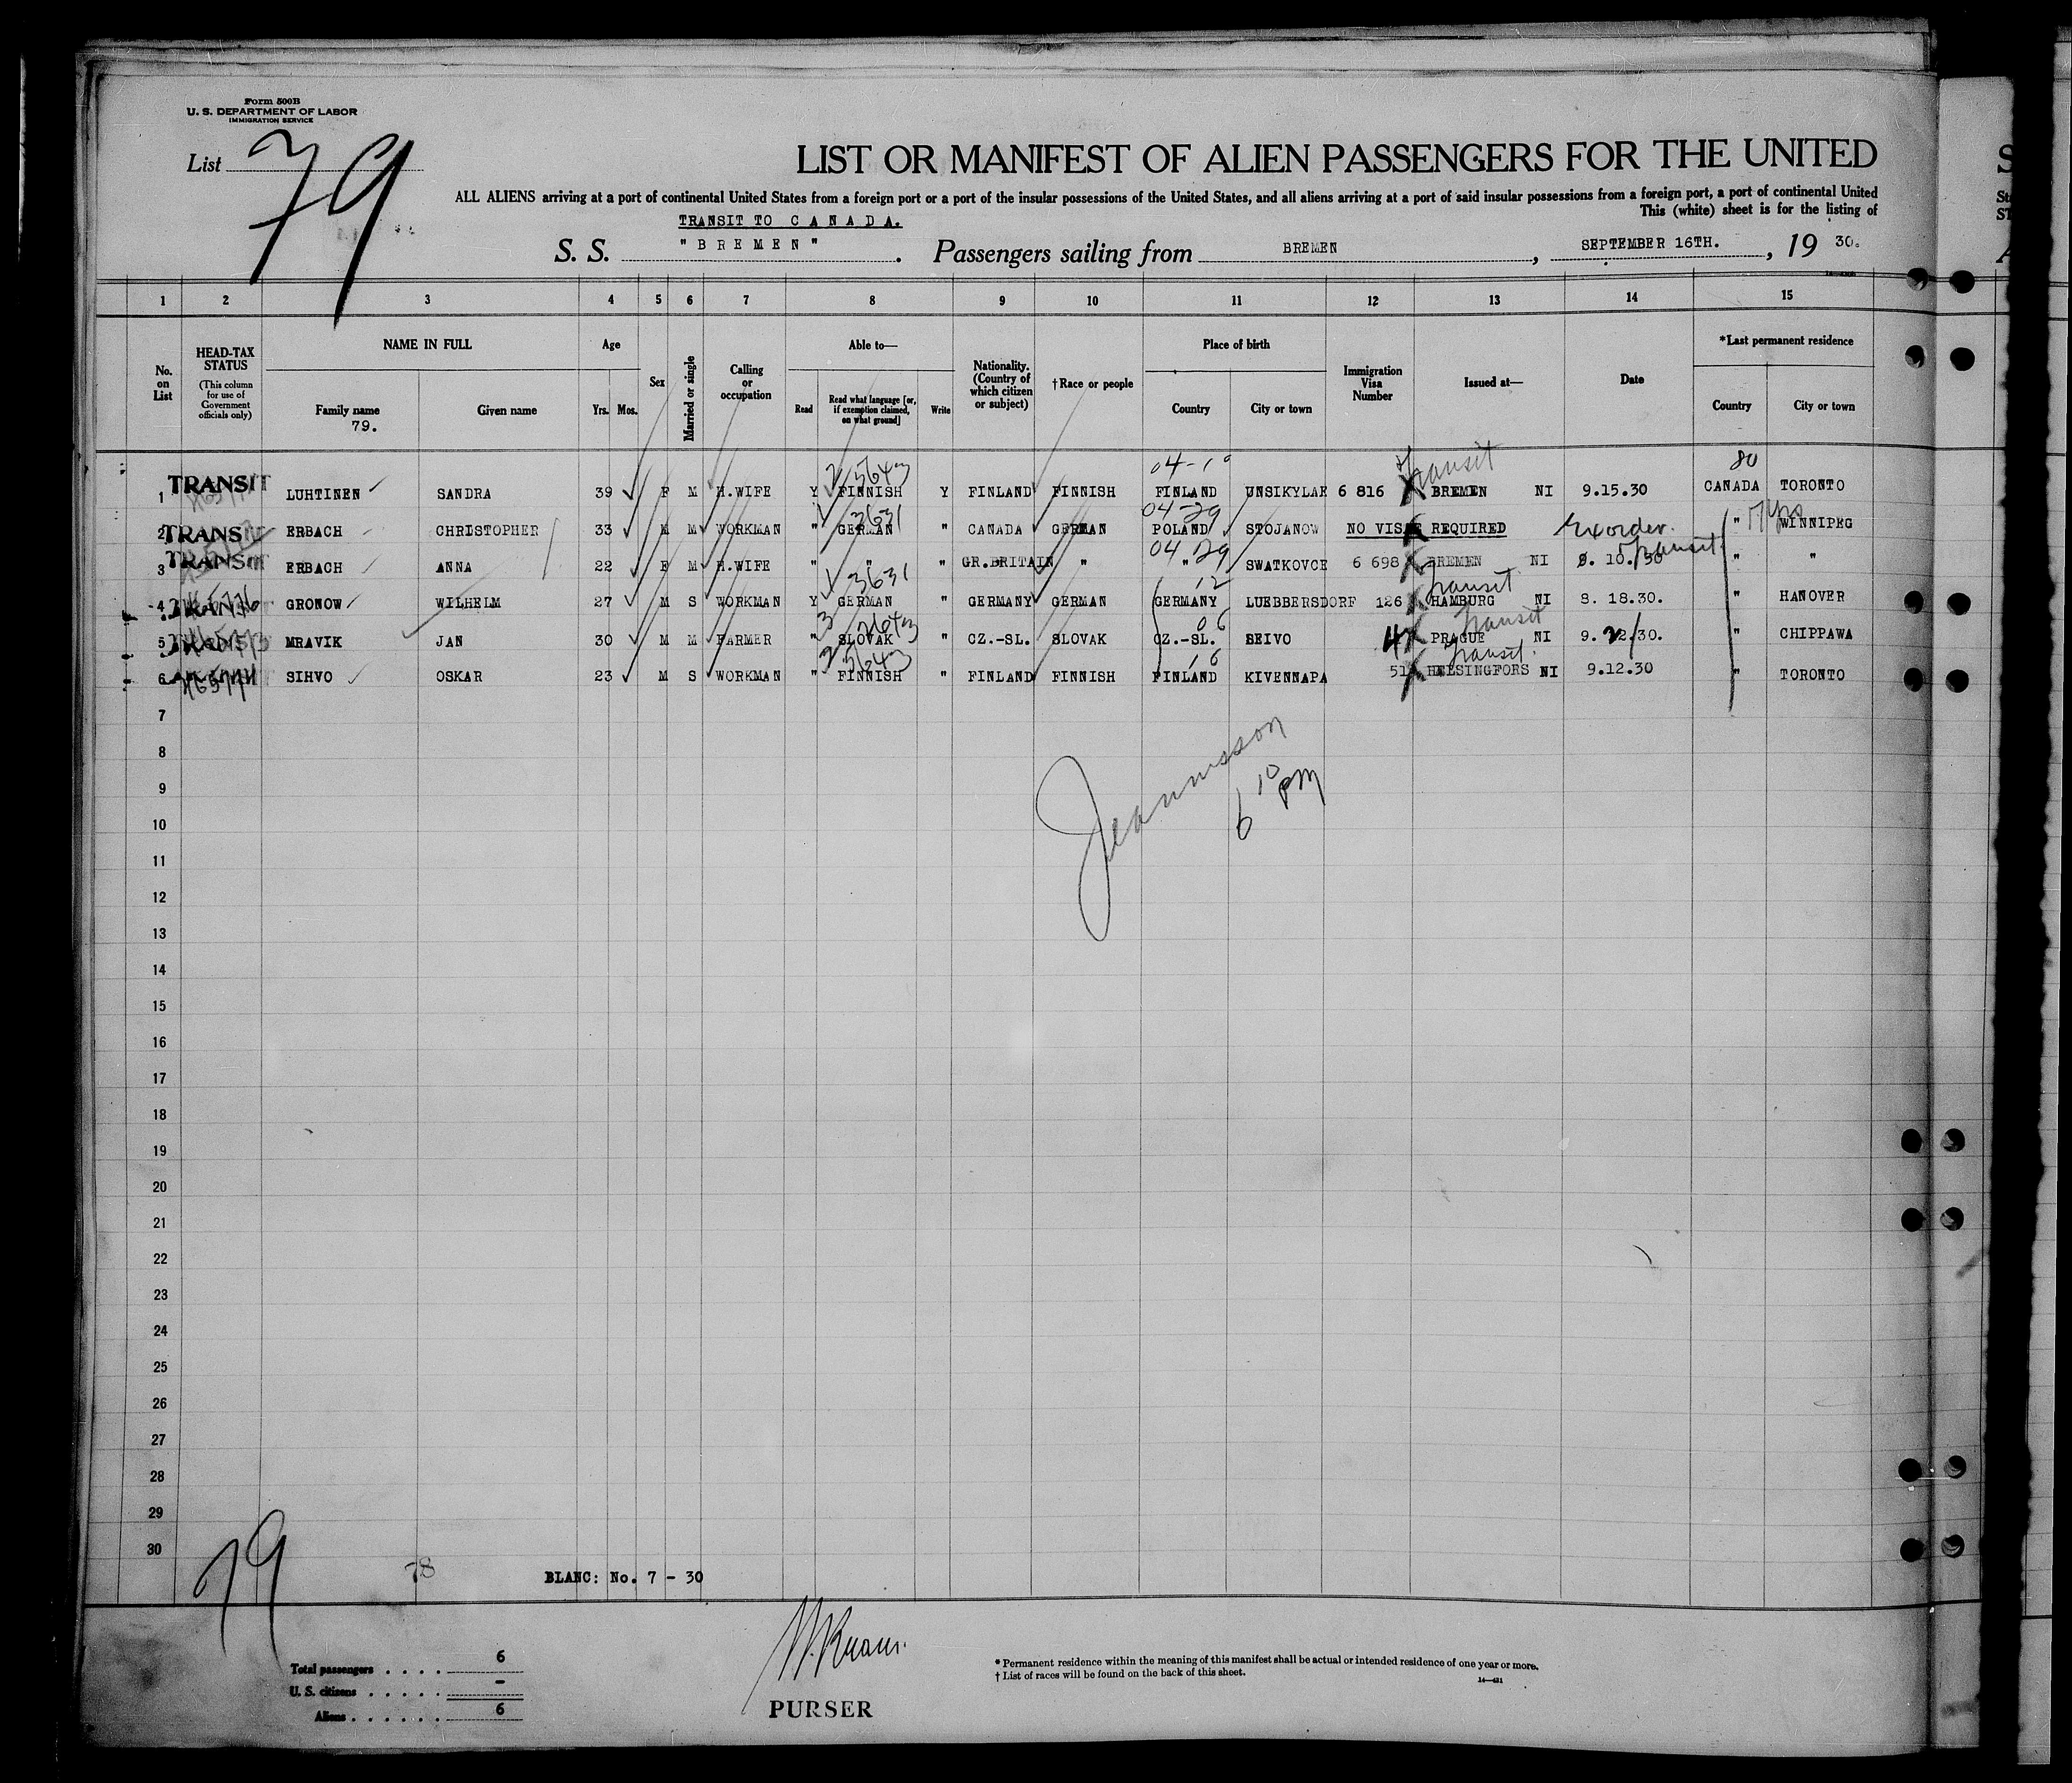 Form 500B
U. S. DEPARTMENT OF LABOR
IMMIGRATION SERVICE
List 79
LIST OR MANIFEST OF ALIEN PASSENGERS FOR THE UNITED
ALL ALIENS arriving at a port of continental United States from a foreign port or a port of the insular possessions of the United States, and all aliens arriving at a port of said insular possessions from a foreign port, a port of continental United
This (white) sheet is for the listing of
TRANSIT TO C A N A D A.
S. S. "B R E M E N". Passengers sailing from BREMEN, SEPTEMBER 16TH., 19 30.
1 2 3 4 5 6 7 8 9 10 11 12 13 14 15
No. on List
HEAD-TAX STATUS (This column for use of Government officials only)
NAME IN FULL
Family name Given name
79.
Age
Yrs. Mos.
Sex
Married or single
Calling or occupation
Able to—
Read
Read what language [or, if exemption claimed, on what ground]
Write
Nationality. (Country of which citizen or subject)
†Race or people
Place of birth
Country City or town
Immigration Visa Number
Issued at—
Date
*Last permanent residence
Country City or town
04-10 Transit 80
1 TRANSIT LUHTINEN SANDRA 39 F M H.WIFE Y FINNISH Y FINLAND FINNISH FINLAND UNSIKYLAE 6 816 BREMEN NI 9.15.30 CANADA TORONTO
3631 04-29
2 TRANSIT ERBACH CHRISTOPHER 33 M M WORKMAN " GERMAN " CANADA GERMAN POLAND STOJANOW NO VISAE REQUIRED " WINNIPEG
04-29 Transit
3 TRANSIT ERBACH ANNA 22 F M H.WIFE " " " GR.BRITAIN " " SWATKOVCE 6 698 BREMEN NI 10.30 " "
3631 12 Transit
4 GRONOW WILHELM 27 M S WORKMAN Y GERMAN " GERMANY GERMAN GERMANY LUEBBERSDORF 126 HAMBURG NI 8.18.30. " HANOVER
06 Transit
5 MRAVIK JAN 30 M M FARMER " SLOVAK " CZ.-SL. SLOVAK CZ.-SL. BEIVO PRAGUE NI " CHIPPAWA
16 Transit
6 SIHVO OSKAR 23 M S WORKMAN " FINNISH " FINLAND FINNISH FINLAND KIVENNAPA 51 HELSINGFORS NI 9.12.30 " TORONTO
7
8
9
10
6 10 PM
11
12
13
14
15
16
17
18
19
20
21
22
23
24
25
26
27
28
29
30
79 78 BLANC: No. 7 - 30
Total passengers . . . . 6
U. S. citizens . . . . . -
Aliens . . . . . . 6
PURSER
* Permanent residence within the meaning of this manifest shall be actual or intended residence of one year or more.
† List of races will be found on the back of this sheet.